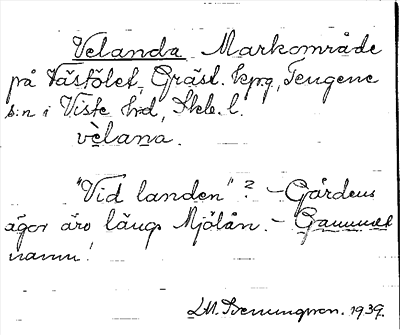 Velanda Markområde
på Västölet, Gräst. kprg, Tengene
s:n i Viste hrd, Skbl. l.
vèlana.
"Vid landen"? - Gårdens
ägor äro längs Mjölån. - Gammalt
namn!
1939.